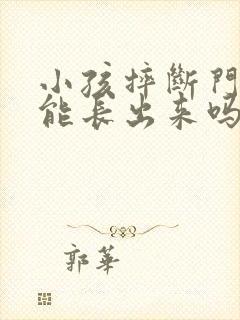 小孩摔斷門
能長出来吗
郭華